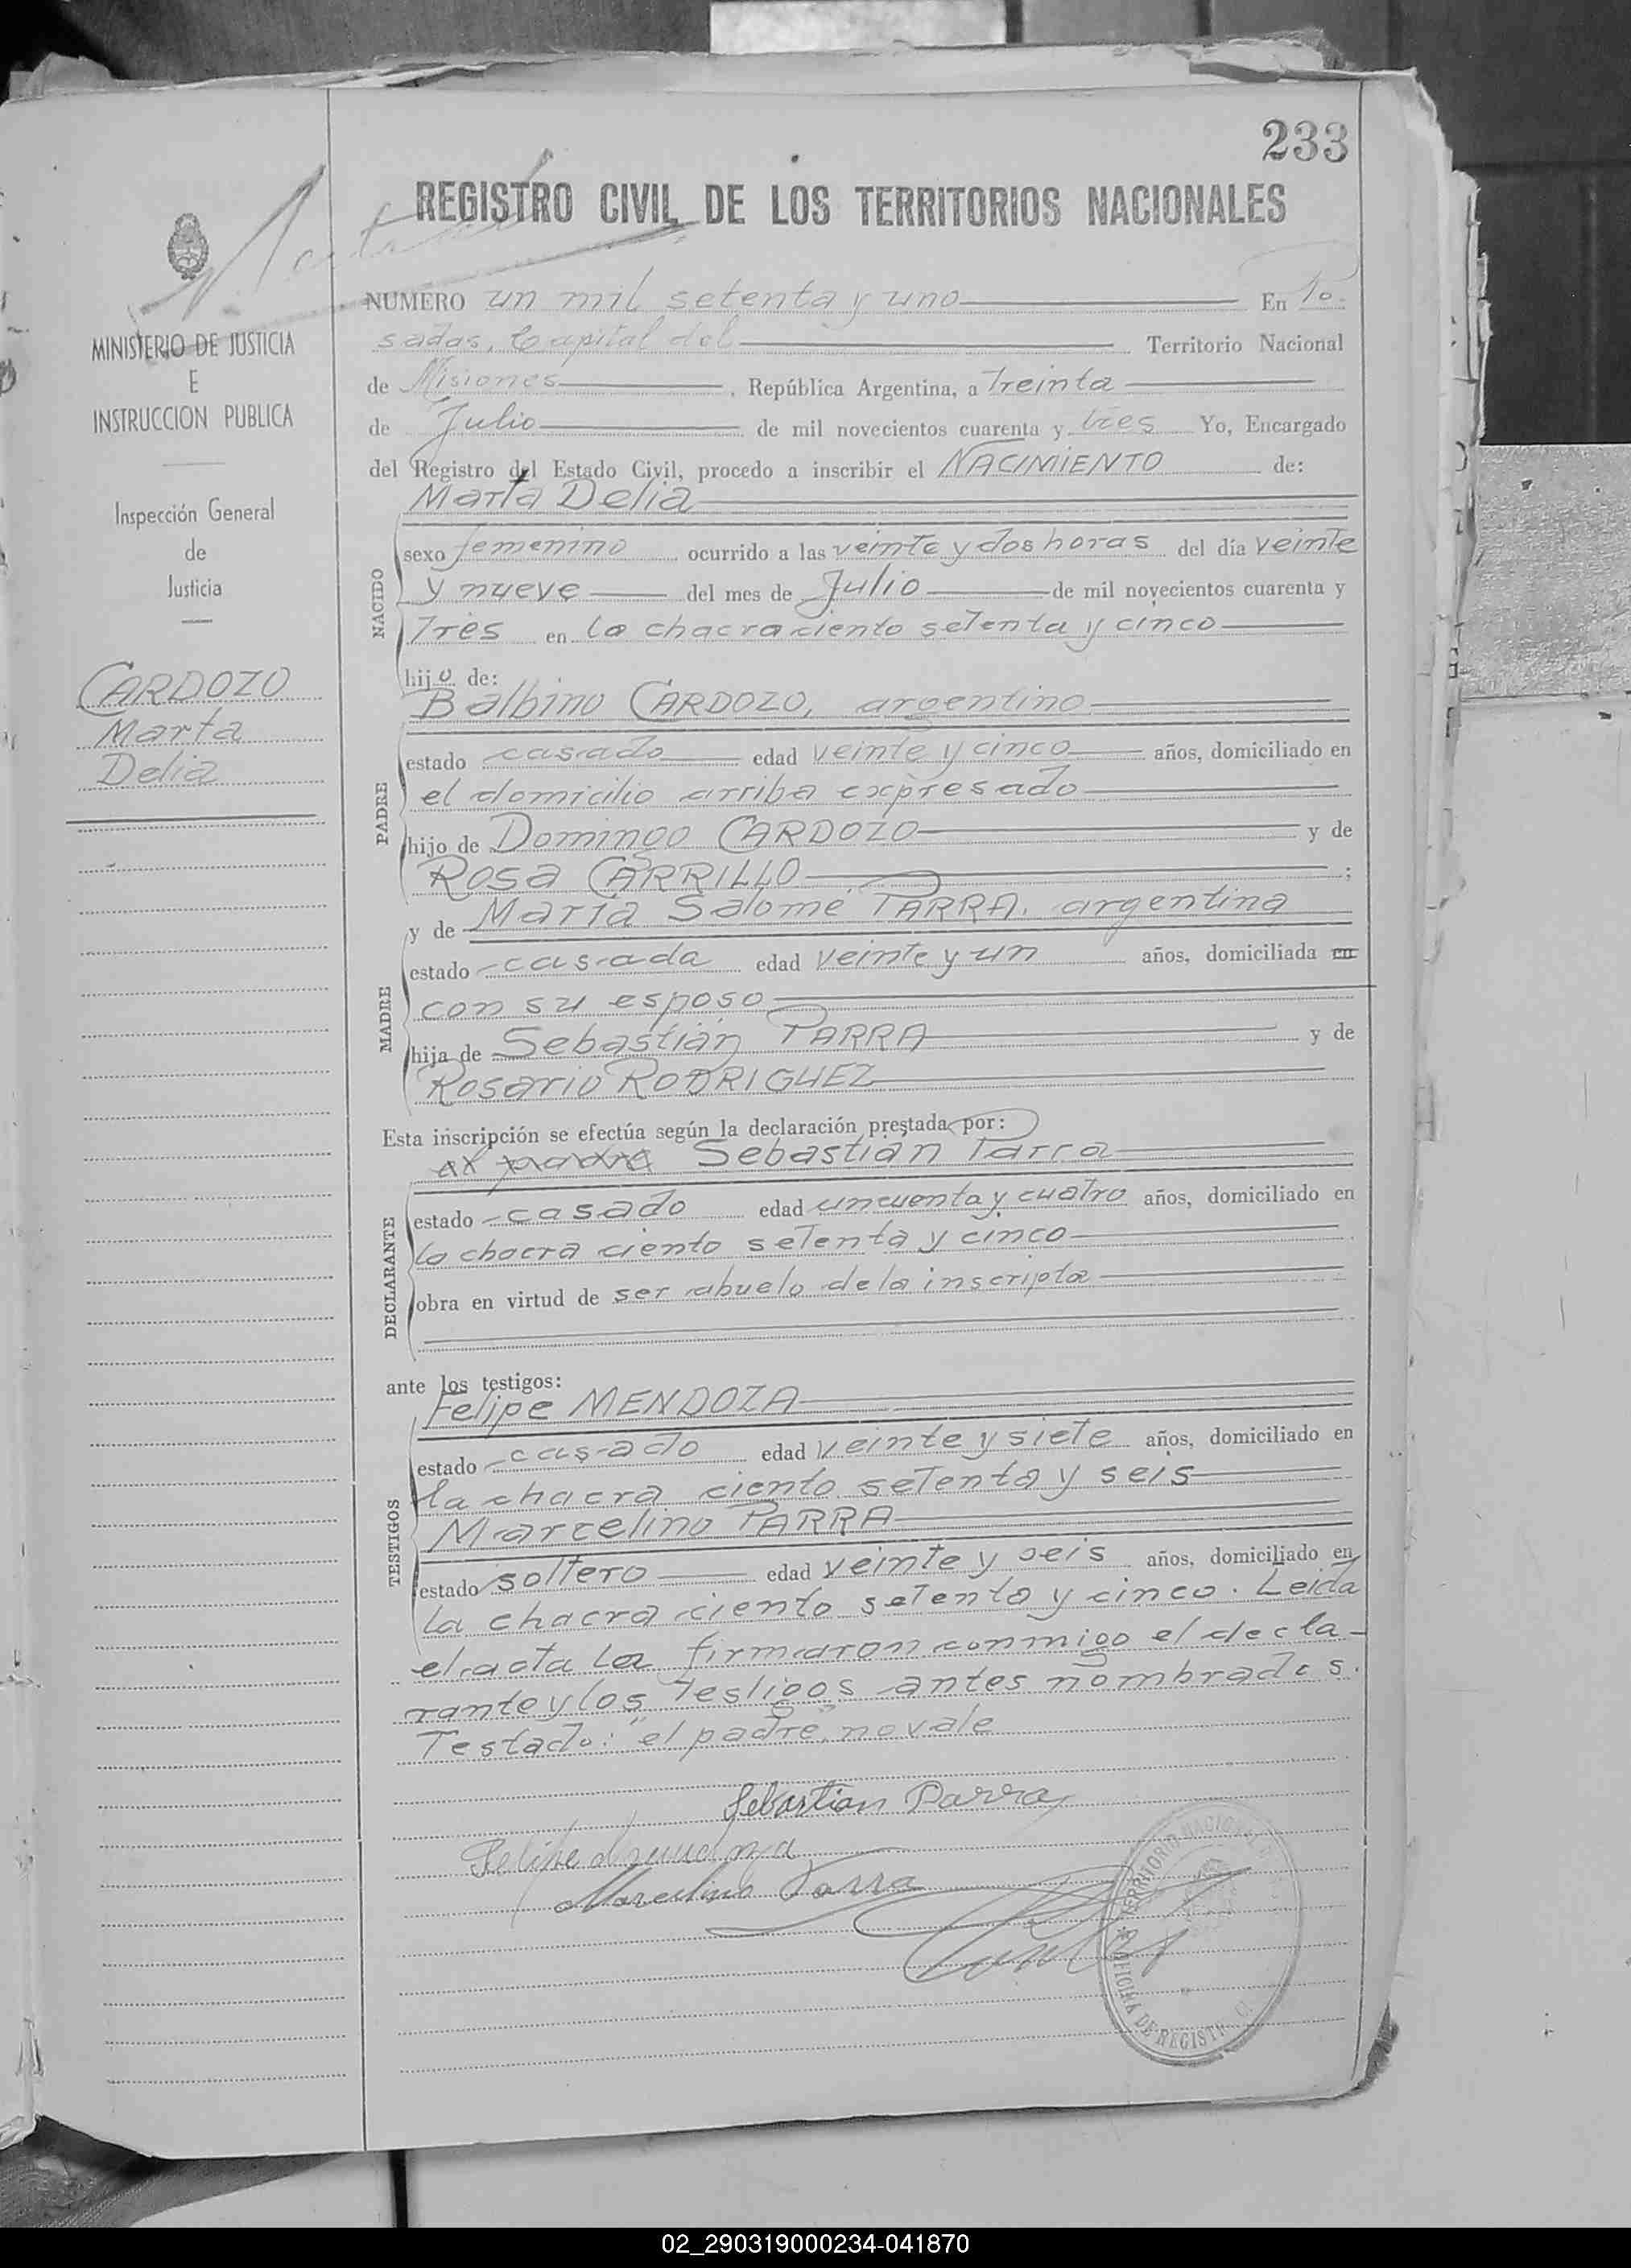 233
REGISTRO CIVIL DE LOS TERRITORIOS NACIONALES
MINISTERIO DE JUSTICIA
E
INSTRUCCION PUBLICA
Inspección General
de
Justicia
CARDOZO
Marta
Delia
NUMERO un mil setenta y uno En Po-
sadas, Capital del Territorio Nacional
de Misiones, República Argentina, a Treinta
de Julio de mil novecientos cuarenta y tres Yo, Encargado
del Registro del Estado Civil, procedo a inscribir el NACIMIENTO de:
Marta Delia
NACIDO
sexo femenino ocurrido a las veinte y dos horas del día veinte
y nueve del mes de Julio de mil novecientos cuarenta y
Tres en la chacra ciento setenta y cinco
hijo de:
Balbino CARDOZO, argentino
PADRE
estado casado edad veinte y cinco años, domiciliado en
el domicilio arriba expresado
hijo de Domingo CARDOZO y de
Rosa CARRILLO;
y de María Salomé PARRA, argentina
MADRE
estado casada edad veinte y un años, domiciliada en
con su esposo
hija de Sebastián PARRA y de
Rosario RODRIGUEZ
Esta inscripción se efectúa según la declaración prestada por:
el padre Sebastián Parra
DECLARANTE
estado casado edad cincuenta y cuatro años, domiciliado en
la chacra ciento setenta y cinco
obra en virtud de ser abuelo de la inscripta
ante los testigos:
Felipe MENDOZA
TESTIGOS
estado casado edad veinte y siete años, domiciliado en
la chacra ciento setenta y seis
Marcelino PARRA
estado soltero edad veinte y seis años, domiciliado en
la chacra ciento setenta y cinco. Leida
el acta la firmaron conmigo el decla-
rante y los testigos antes nombrados.
Testado: "el padre" no vale
Sebastian Parra
Felipe Mendoza
Marcelino Parra
TERRITORIO NACIONAL
OFICINA DE REGISTR
02_290319000234-041870